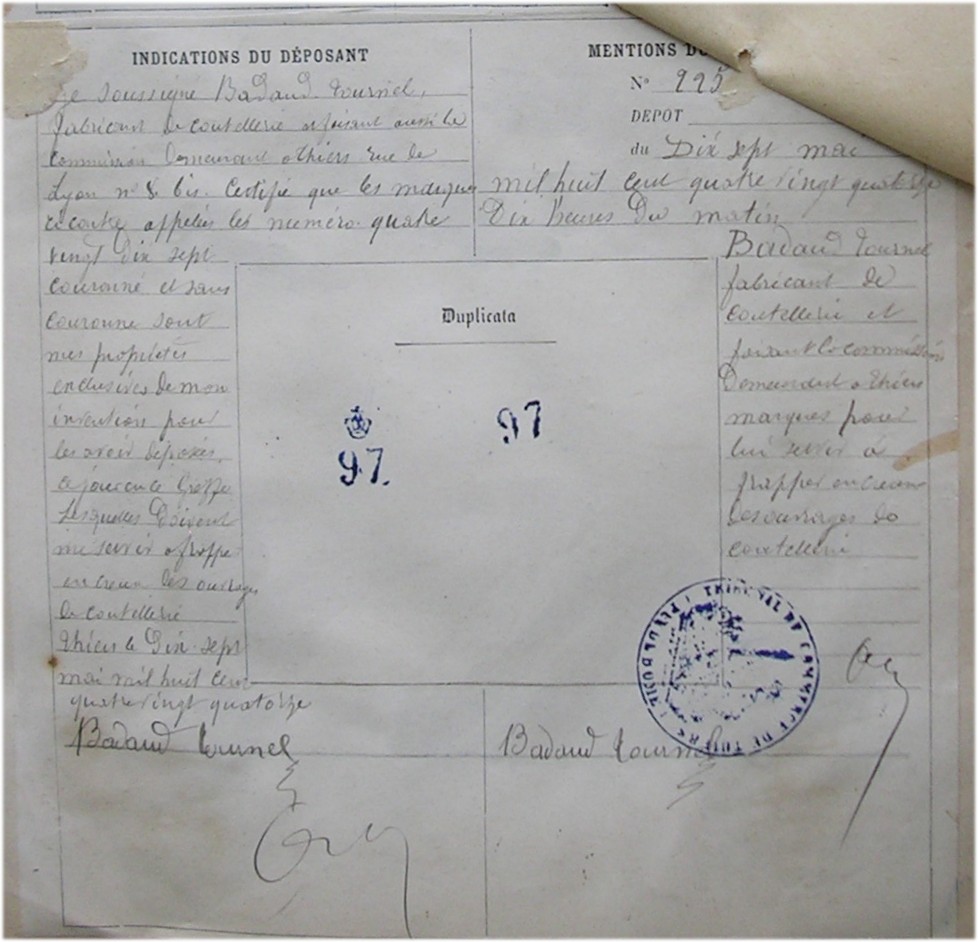 INDICATIONS DU DÉPOSANT
je soussigné Badaud Tournel,
fabricant de coutellerie et faisant aussi la
commission demeurant à thiers rue de
Lyon n° 8 bis. Certifie que les marques
ci contre appelées les numéro quatre
vingt dix sept
couronné et sans
couronne sont
mes propriétés
exclusives de mon
invention pour
les avoir déposés
ce jour au Greffe
Lesquelles doivent
me servir a frapper
en creux des ouvrages
de coutellerie
thiers le Dix sept
mai mil huit cent
quatre vingt quatorze
Badaud Tournel
MENTIONS DU
N° 225
DEPOT
du Dix sept mai
mil huit cent quatre vingt quatorze
Dix heures Du matin
Badaud Tournel
fabricant de
coutellerie et
faisant la commission
Demeurant a thiers
marques pour
lui servir à
frapper en creux
des ouvrages de
coutellerie
Badaud Tournel
Duplicata
97.
97
TRIBUNAL DE COMMERCE DE THIERS
PUY DE DOME